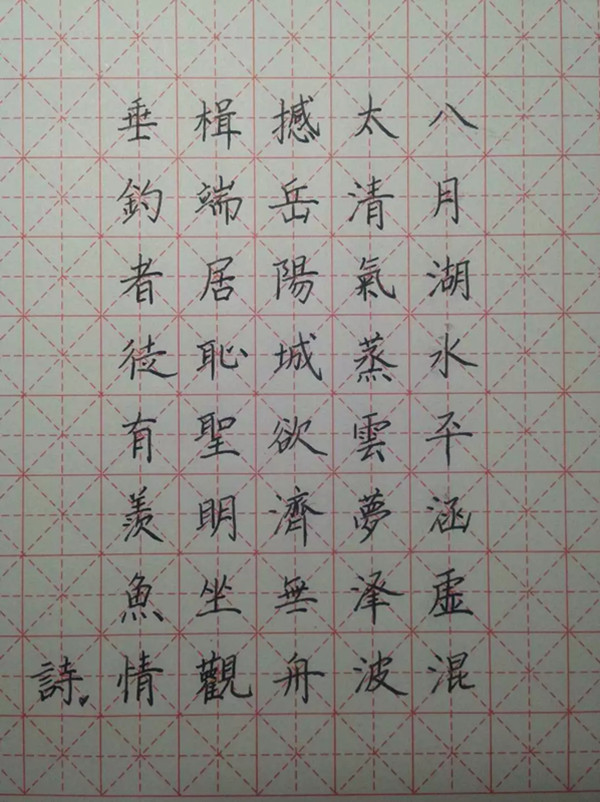 八月湖水平涵虛混
太清氣蒸雲夢澤波
撼岳陽城欲濟無舟
楫端居恥聖明坐觀
垂釣者徒有羨魚情
詩